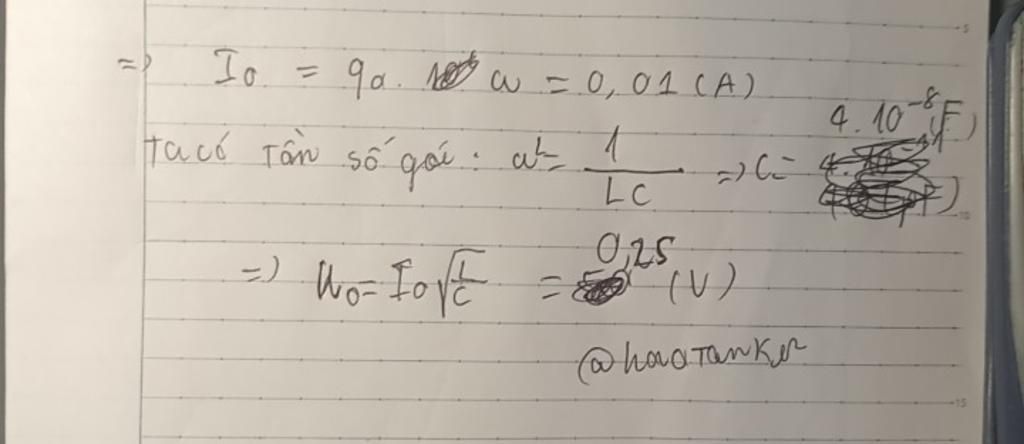 => I0 = q0. ω = 0,01 (A)
Ta có Tần số góc: ω² = 1/LC => C = 4.10^-8 (F)
=> U0 = I0 √(L/C) = 0,25 (V)
@haoTanker